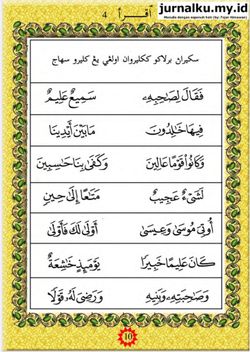 jurnalku.my.id
اقرأ 4
سكيران برلاكو ککليروان اولڠي يڠ کليرو سهاج
فَقَالَ لِصَاحِبِهِ سَمِيعٌ عَلِيمٌ
فِيهَا خَالِدُونَ مَابَيْنَ أَيْدِينَا
وَكَانُوا قَوْمًا عَالِينَ وَكَفَى بِنَا حَاسِبِينَ
لَشَيْءٌ عَجِيبٌ مَتَعًا إِلَى حِينٍ
أُوتِيَ مُوسَى وَعِيسَى أَوْلَى لَكَ فَأَوْلَى
كَانَ عَلِيمًا خَبِيرًا يَوْمَئِذٍ خَشِعَةٌ
وَصَاحِبَتِهِ وَبَنِيهِ وَرَضِيَ لَهُ قَوْلًا
10